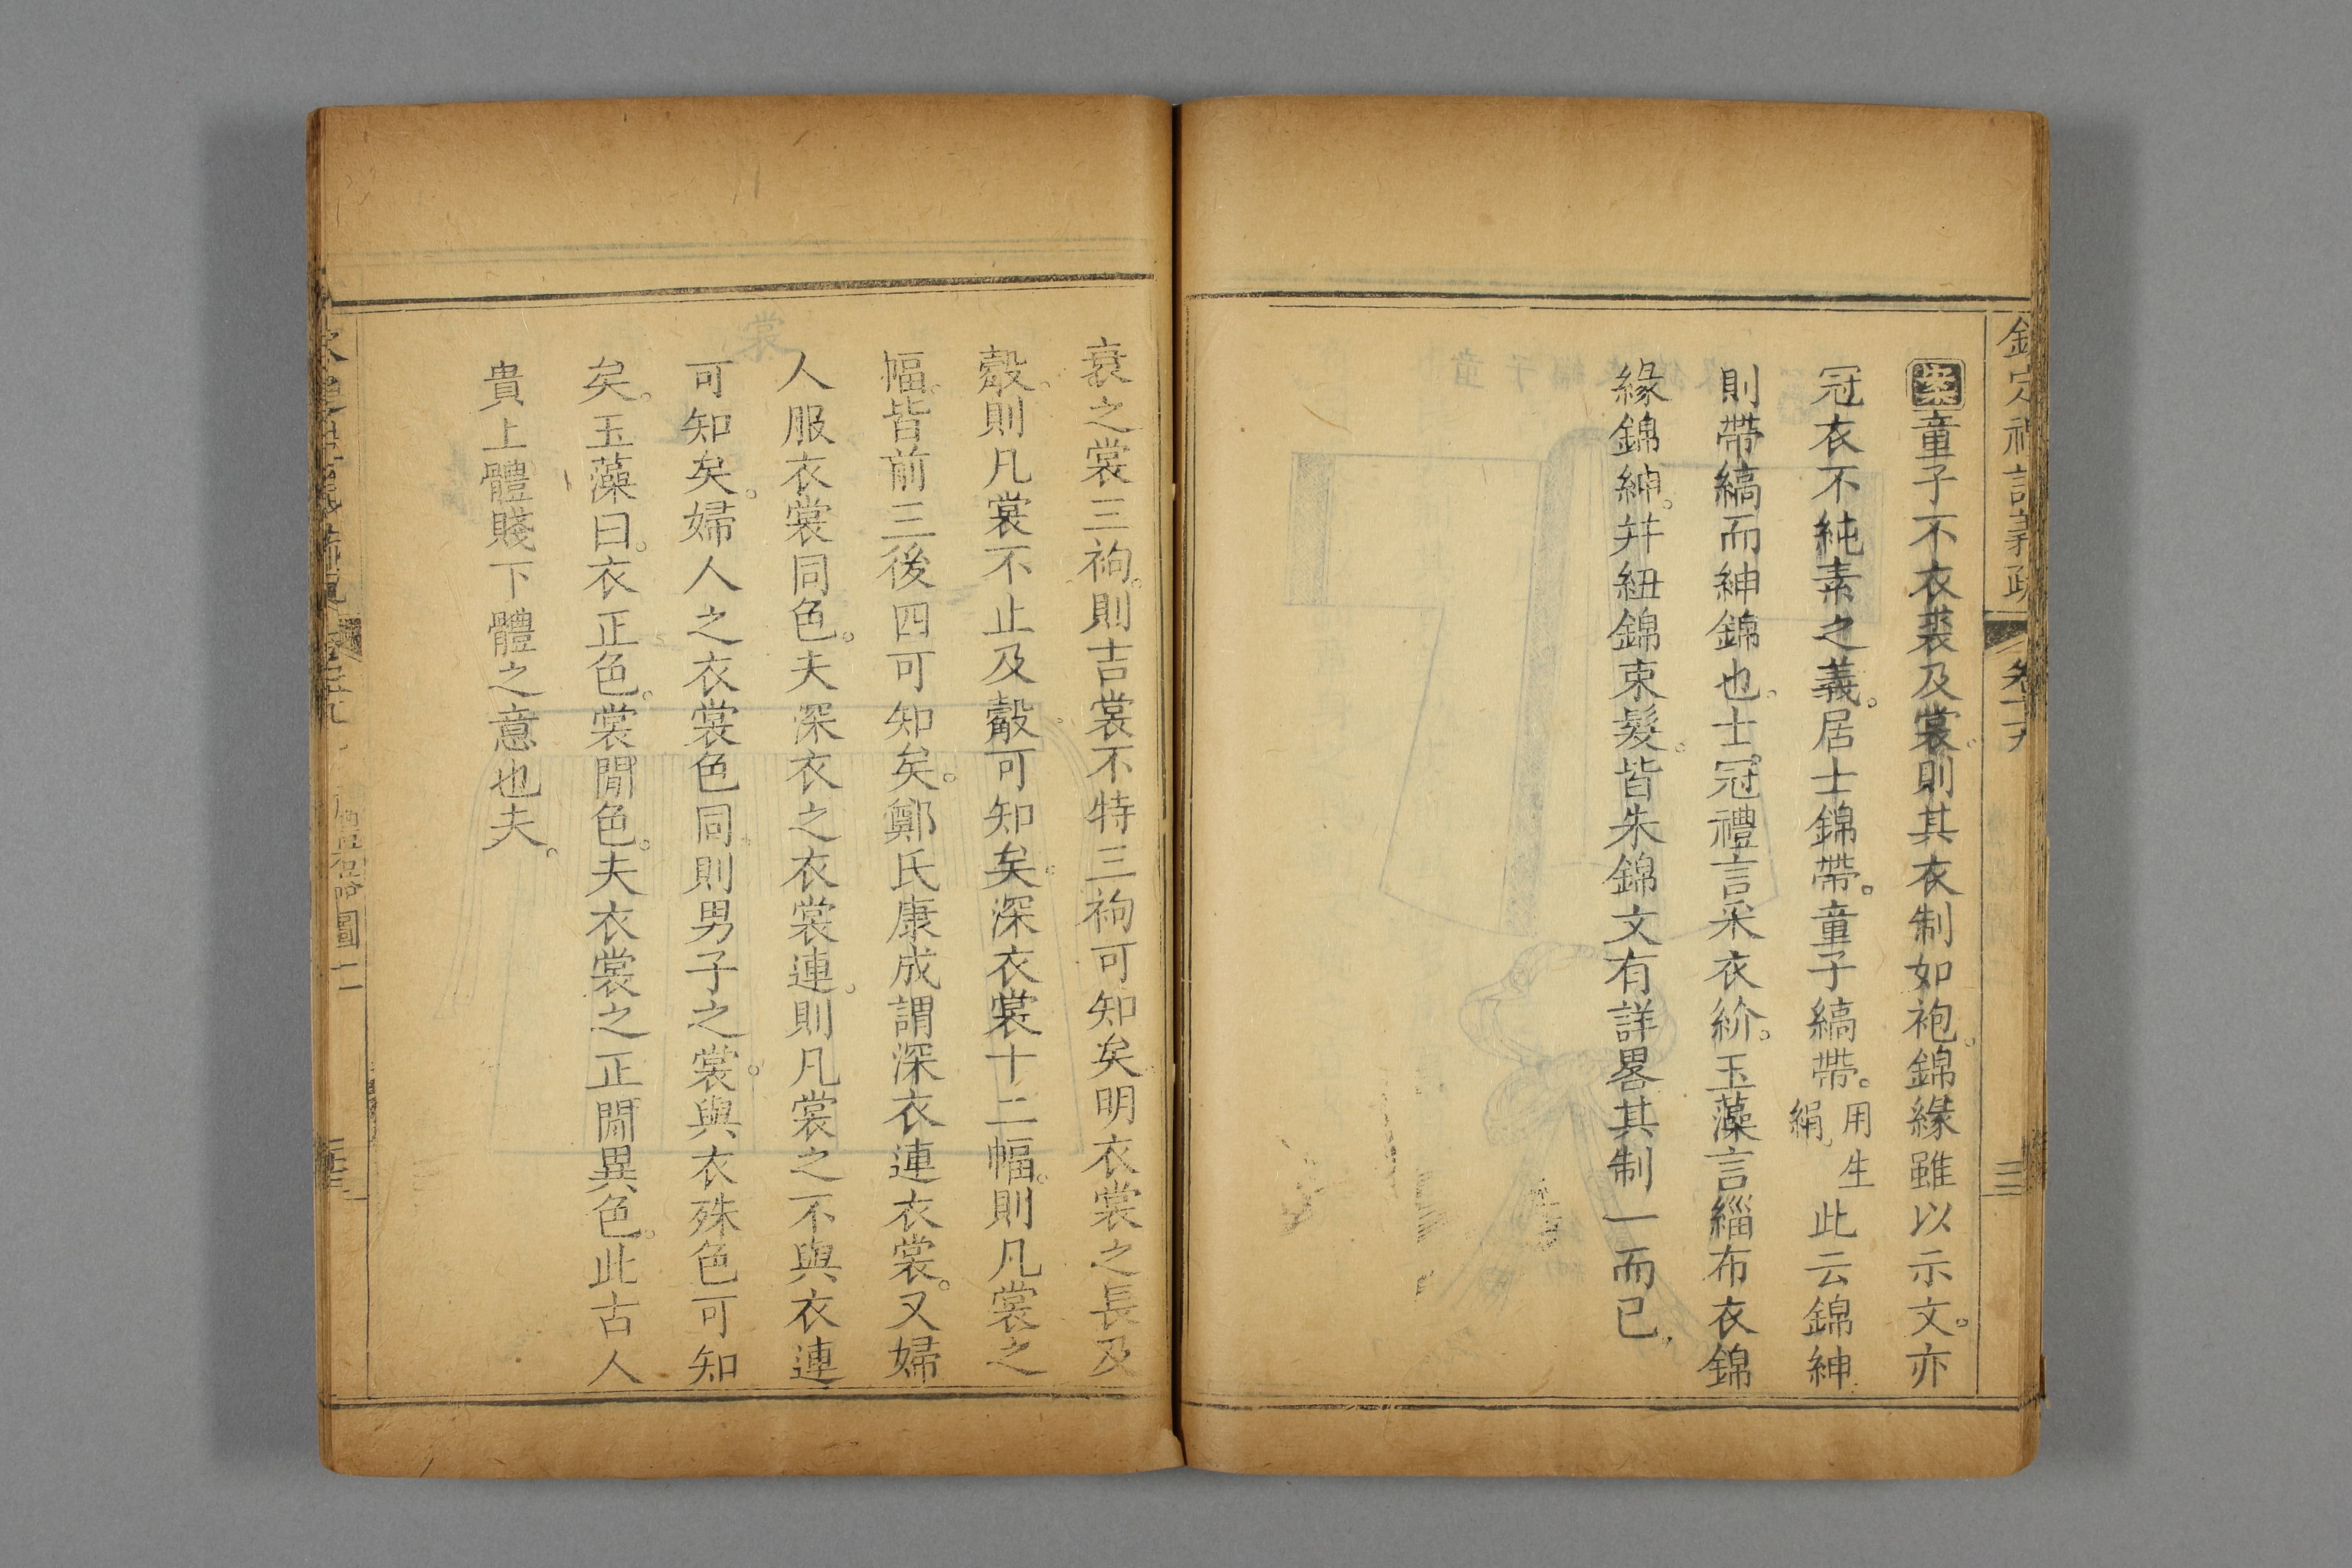 案童子不衣裘及裳。則其衣制如袍。錦緣雖以示文。亦
冠衣不純素之義。居士錦帶。童子縞帶。用生絹。此云錦紳
則帶縞而紳錦也。士冠禮言采衣紒。玉藻言緇布衣錦
緣錦紳。并紐錦束髮。皆朱錦文有詳畧其制一而已。
三
衰之裳三袧。則吉裳不特三袧可知矣明衣裳之長及
觳。則凡裳不止及觳可知矣。深衣裳十二幅。則凡裳之
幅。皆前三後四可知矣。鄭氏康成謂深衣連衣裳。又婦
人服衣裳同色。夫深衣之衣裳連。則凡裳之不與衣連
可知矣。婦人之衣裳色同。則男子之裳。與衣殊色可知
矣。玉藻曰。衣正色。裳閒色。夫衣裳之正閒異色。此古人
貴上體賤下體之意也夫。